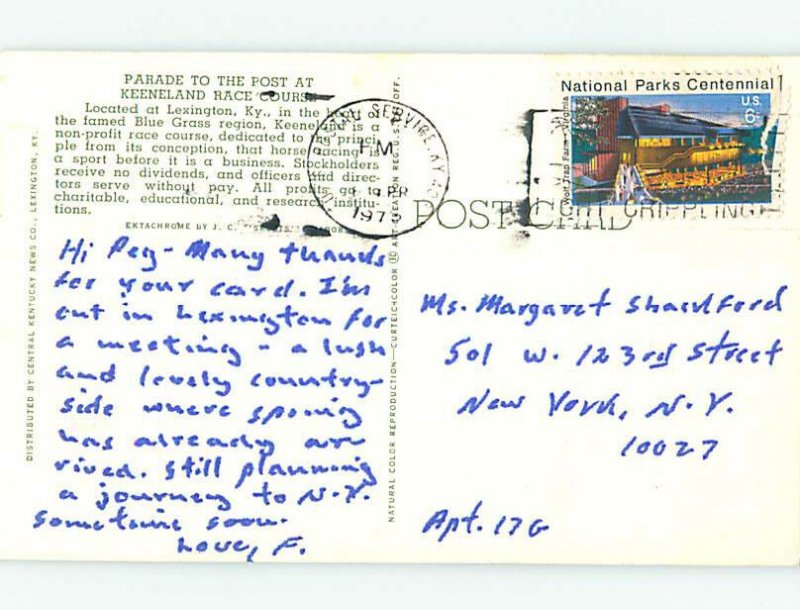 PARADE TO THE POST AT
KEENELAND RACE COURSE
Located at Lexington, Ky., in the heart of
the famed Blue Grass region, Keeneland is a
non-profit race course, dedicated to the princi-
ple from its conception, that horse racing is
a sport before it is a business. Stockholders
receive no dividends, and officers and direc-
tors serve without pay. All profits go to
charitable, educational, and research institu-
tions.
EKTACHROME BY J. C.
DISTRIBUTED BY CENTRAL KENTUCKY NEWS CO., LEXINGTON, KY.
Hi Peg - Many thanks
for your card. I'm
out in Lexington for
a meeting - a lush
and lovely country-
side where spring
has already arr
rived. Still planning
a journey to N.Y.
sometime soon.
Love, F.
NATURAL COLOR REPRODUCTION—CURTEICHCOLOR ® ART-CREATION REG. U.S.
POST CARD
SERVICE, KY
PM
APR
197
National Parks Centennial
U.S.
6c
Wolf Trap Farm - Virginia
CRIPPLING
Ms. Margaret Shacklford
501 W. 123rd Street
New York, N.Y.
10027
Apt. 17G